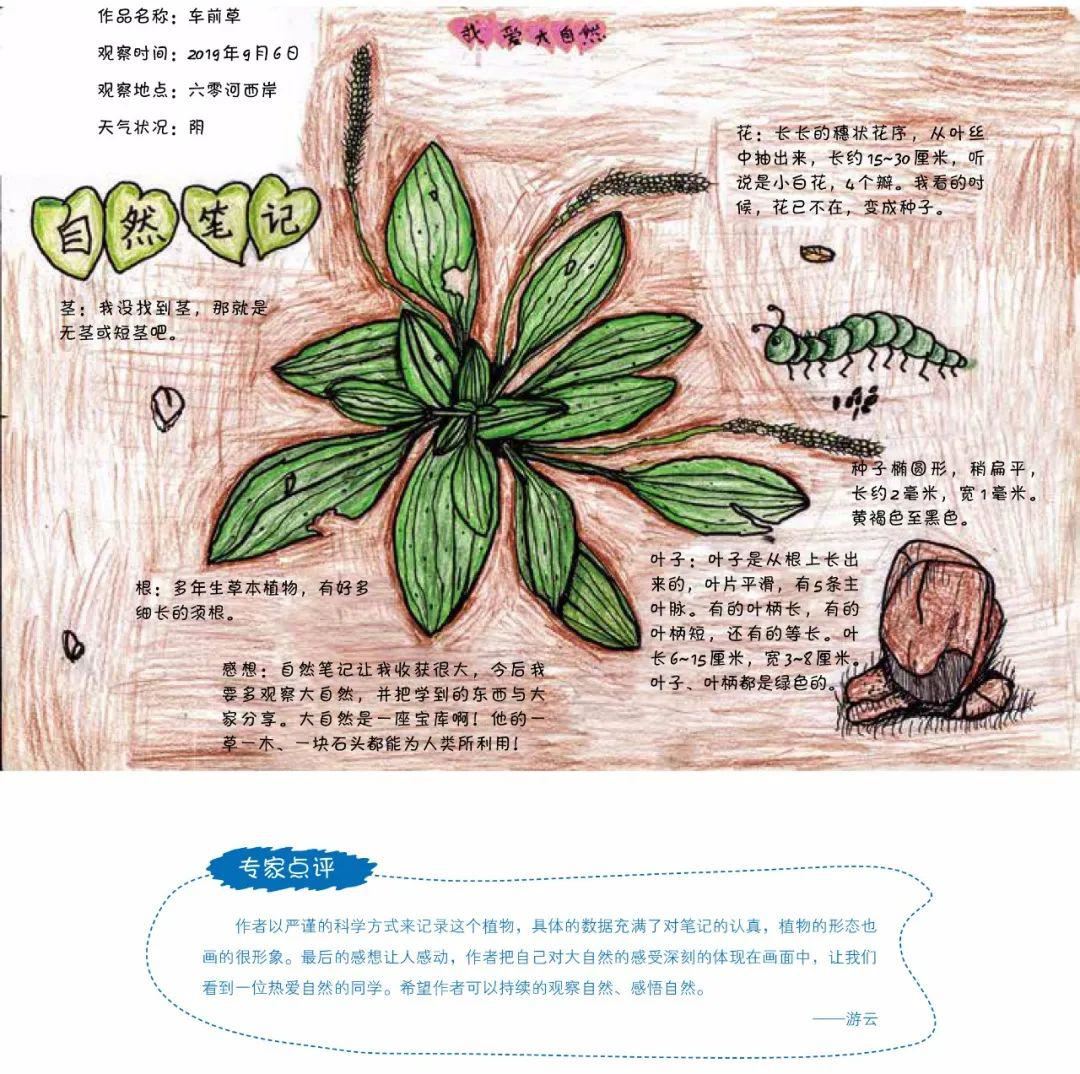 作品名称：车前草
观察时间：2019年9月6日
观察地点：六零河西岸
天气状况：阴
我爱大自然
自然笔记
花：长长的穗状花序，从叶丝
中抽出来，长约15~30厘米，听
说是小白花，4个瓣。我看的时
候，花已不在，变成种子。
茎：我没找到茎，那就是
无茎或短茎吧。
种子椭圆形，稍扁平，
长约2毫米，宽1毫米。
黄褐色至黑色。
根：多年生草本植物，有好多
细长的须根。
叶子：叶子是从根上长出
来的，叶片平滑，有5条主
叶脉。有的叶柄长，有的
叶柄短，还有的等长。叶
长6~15厘米，宽3~8厘米。
叶子、叶柄都是绿色的。
感想：自然笔记让我收获很大，今后我
要多观察大自然，并把学到的东西与大
家分享。大自然是一座宝库啊！他的一
草一木、一块石头都能为人类所利用！
专家点评
作者以严谨的科学方式来记录这个植物，具体的数据充满了对笔记的认真，植物的形态也
画的很形象。最后的感想让人感动，作者把自己对大自然的感受深刻的体现在画面中，让我们
看到一位热爱自然的同学。希望作者可以持续的观察自然、感悟自然。
——游云